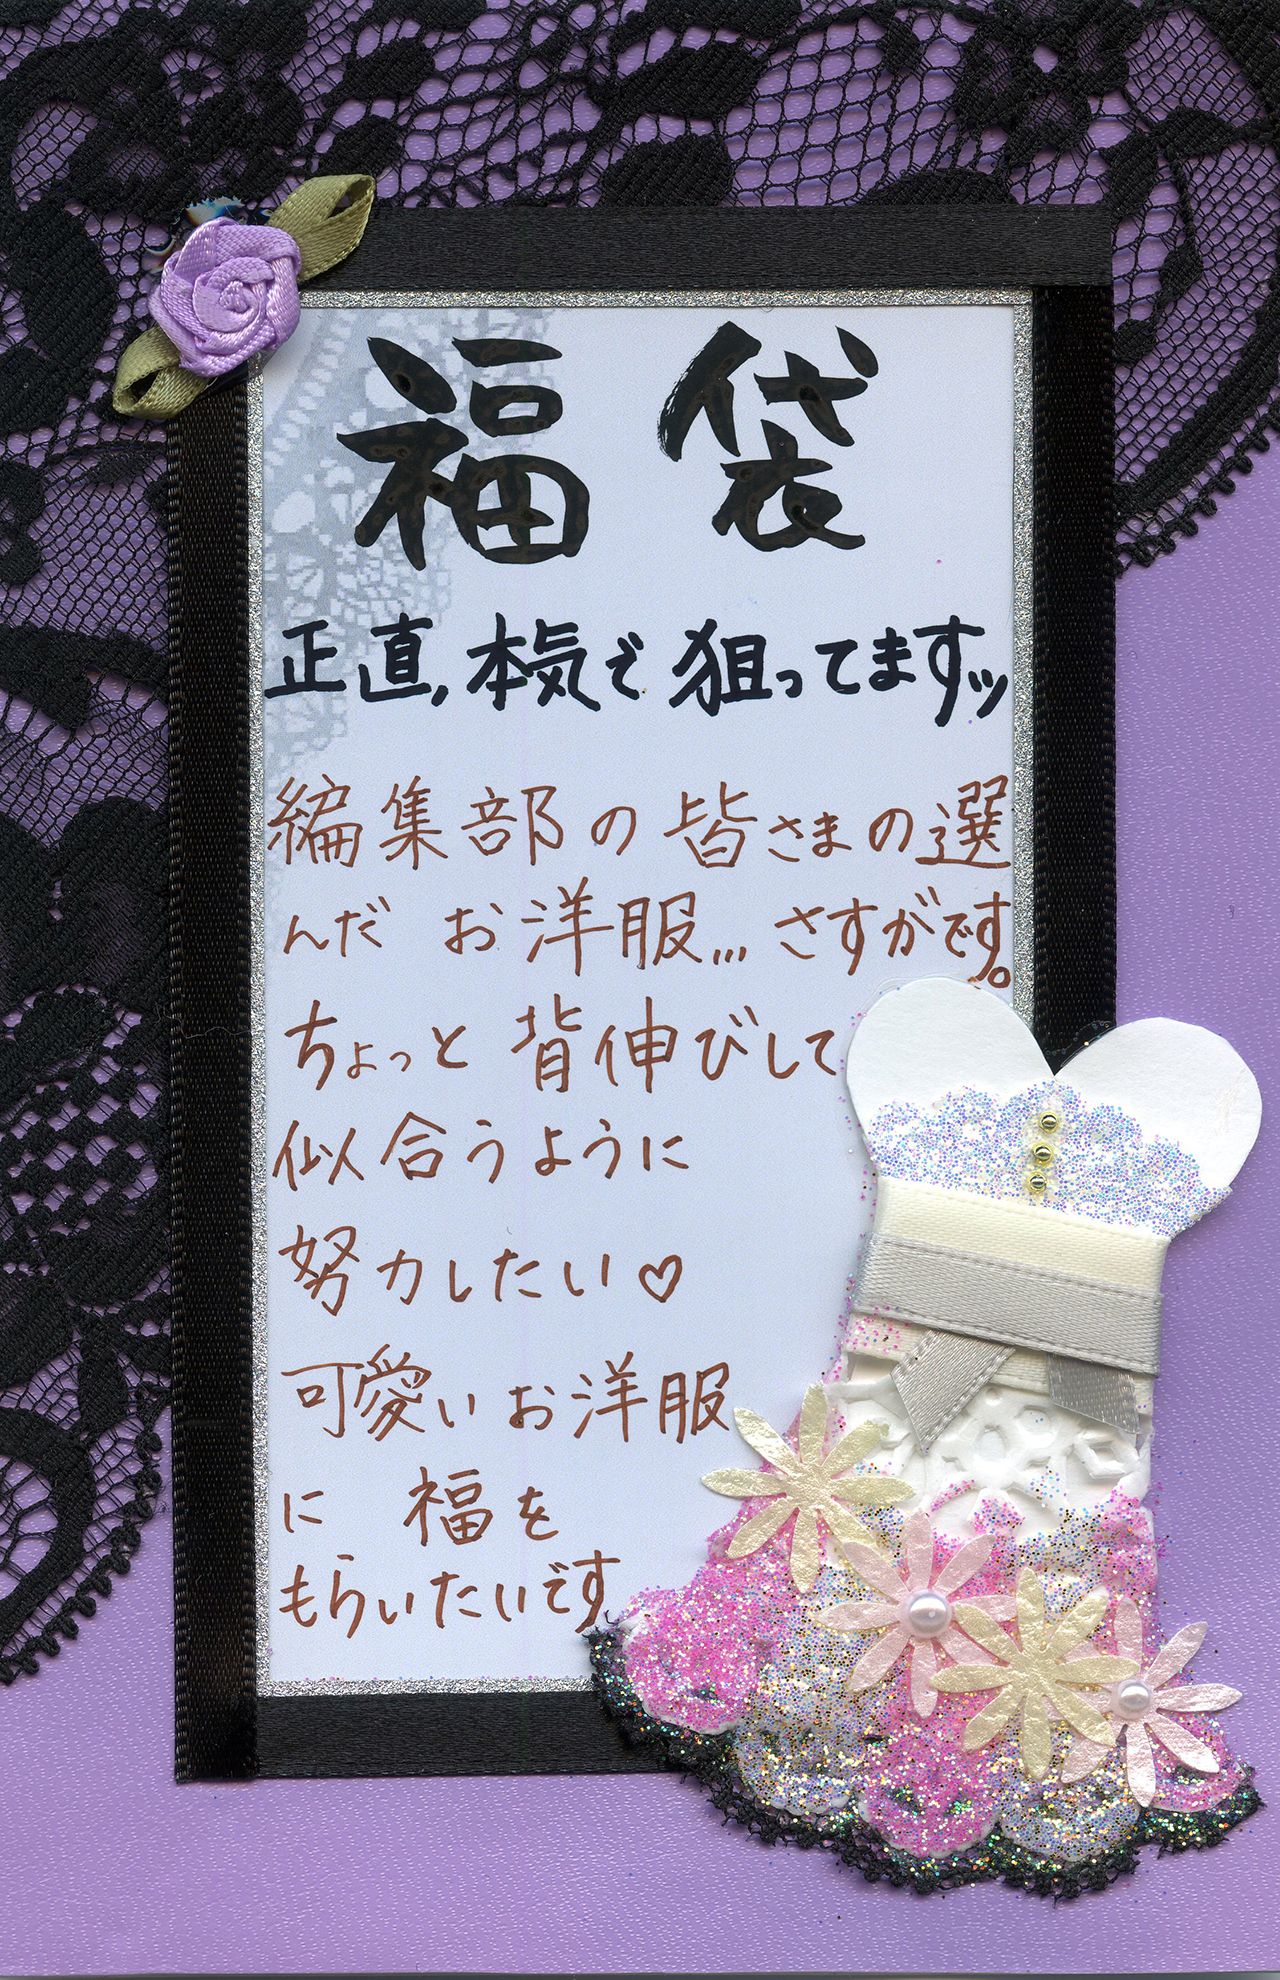 福袋
正直,本気で狙ってますッ
編集部の皆さまの選
んだ お洋服...さすがです。
ちょっと背伸びして
似合うように
努力したい♡
可愛いお洋服
に 福を
もらいたいです